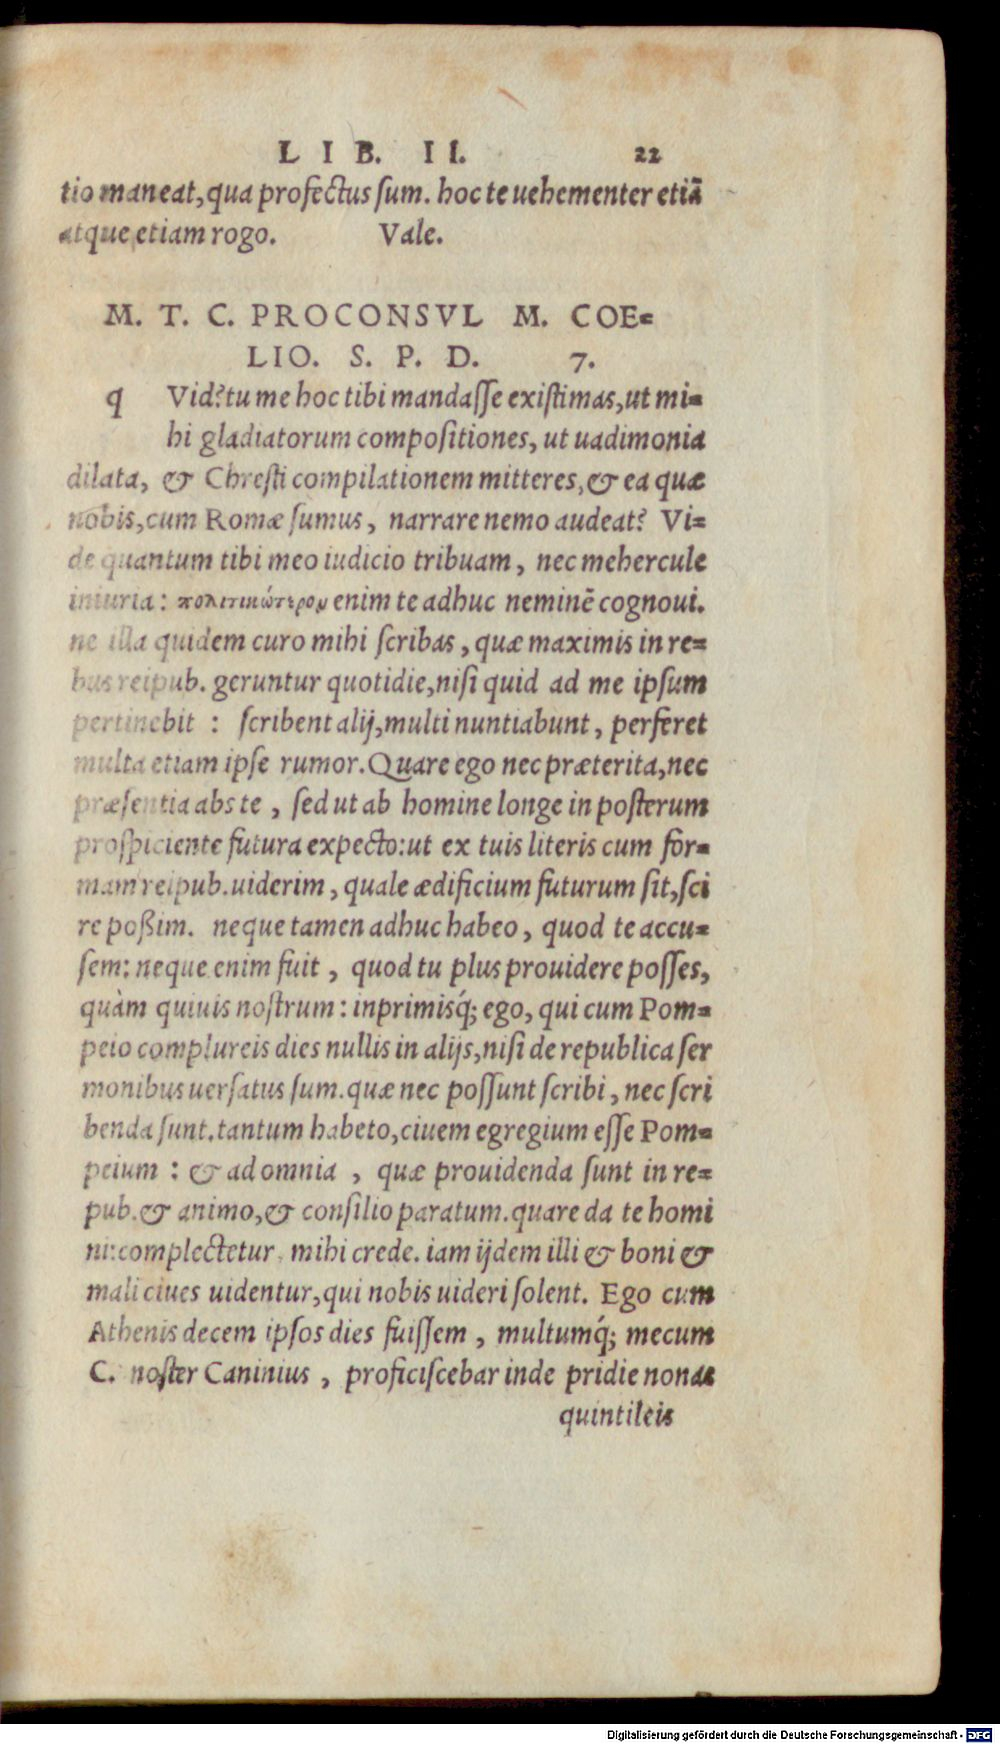 LIB. II. 22
tio maneat, qua profectus sum. hoc te uehementer etiā
atque etiam rogo. Vale.
M. T. C. PROCONSVL M. COE=
LIO. S. P. D. 7.
q Vid? tu me hoc tibi mandasse existimas, ut mi=
hi gladiatorum compositiones, ut uadimonia
dilata, & Chresti compilationem mitteres, & ea quæ
nobis, cum Romæ sumus, narrare nemo audeat? Vi=
de quantum tibi meo iudicio tribuam, nec mehercule
iniuria: πολιτικώτερον enim te adhuc neminē cognoui.
ne illa quidem curo mihi scribas, quæ maximis in re=
bus reipub. geruntur quotidie, nisi quid ad me ipsum
pertinebit : scribent alij, multi nuntiabunt, perferet
multa etiam ipse rumor. Quare ego nec præterita, nec
præsentia abs te, sed ut ab homine longe in posterum
prospiciente futura expecto: ut ex tuis literis cum for=
mam reipub. uiderim, quale ædificium futurum sit, sci
re poßim. neque tamen adhuc habeo, quod te accu=
sem: neque enim fuit, quod tu plus prouidere posses,
quàm quiuis nostrum: inprimisq́; ego, qui cum Pom=
peio complureis dies nullis in alijs, nisi de republica ser
monibus uersatus sum. quæ nec possunt scribi, nec scri
benda sunt. tantum habeto, ciuem egregium esse Pom=
peium : & ad omnia, quæ prouidenda sunt in re=
pub. & animo, & consilio paratum. quare da te homi
ni: complectetur, mihi crede. iam ijdem illi & boni &
mali ciues uidentur, qui nobis uideri solent. Ego cum
Athenis decem ipsos dies fuissem, multumq́; mecum
C. noster Caninius, proficiscebar inde pridie nonas
quintileis
Digitalisierung gefördert durch die Deutsche Forschungsgemeinschaft - DFG